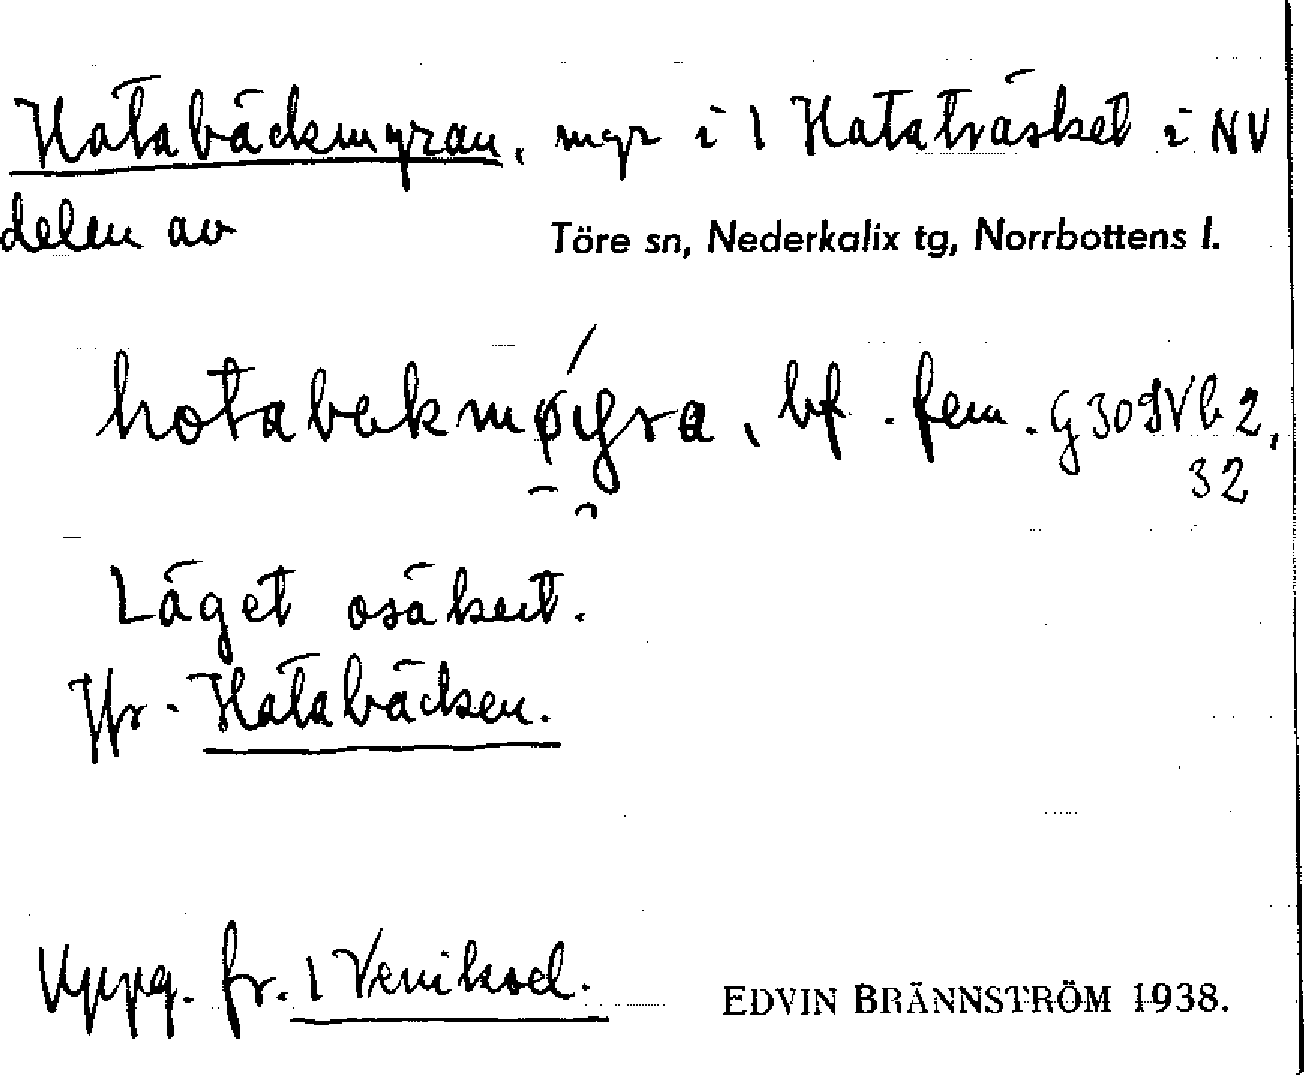 Hatabäckmyran, myr i 1 Hataträsket i NV
delen av Töre sn, Nederkalix tg, Norrbottens l.
bf. fem. G309Vb2,
32
Läget osäkert.
Jfr. Hatabäcken.
Uppg. fr. 1
EDVIN BRÄNNSTRÖM 1938.